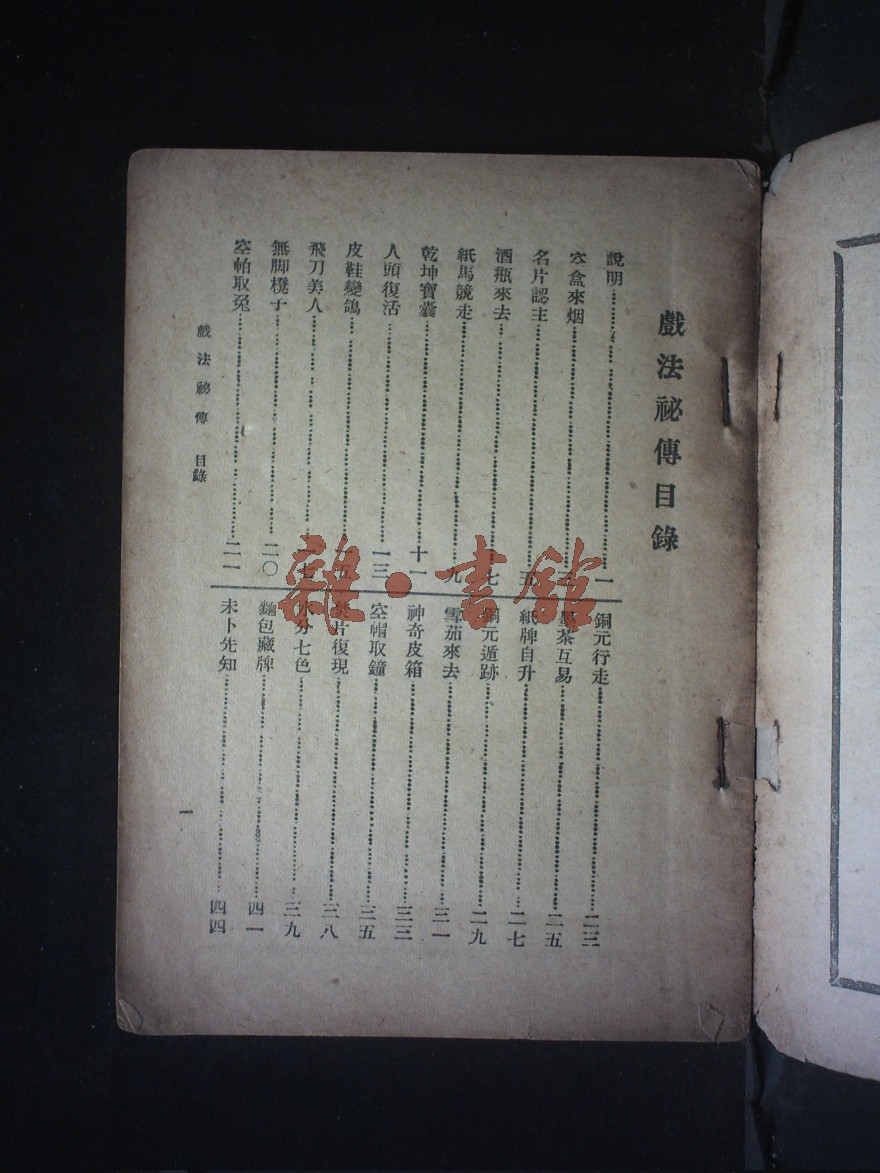 戲法祕傳目錄
說明……一
空盒來烟……
名片認主……五
酒瓶來去……七
紙馬競走……九
乾坤寶囊……十一
人頭復活……一三
皮鞋變鴿……五
飛刀美人……七
無脚櫈子……二〇
空帕取兔……二一
銅元行走……二三
墨茶互易……二五
紙牌自升……二七
銅元遁跡……二九
雪茄來去……三一
神奇皮箱……三三
空帽取鐘……三五
片復現……三八
水分七色……三九
麵包藏牌……四一
未卜先知……四四
戲法祕傳 目錄
一
雜·書館